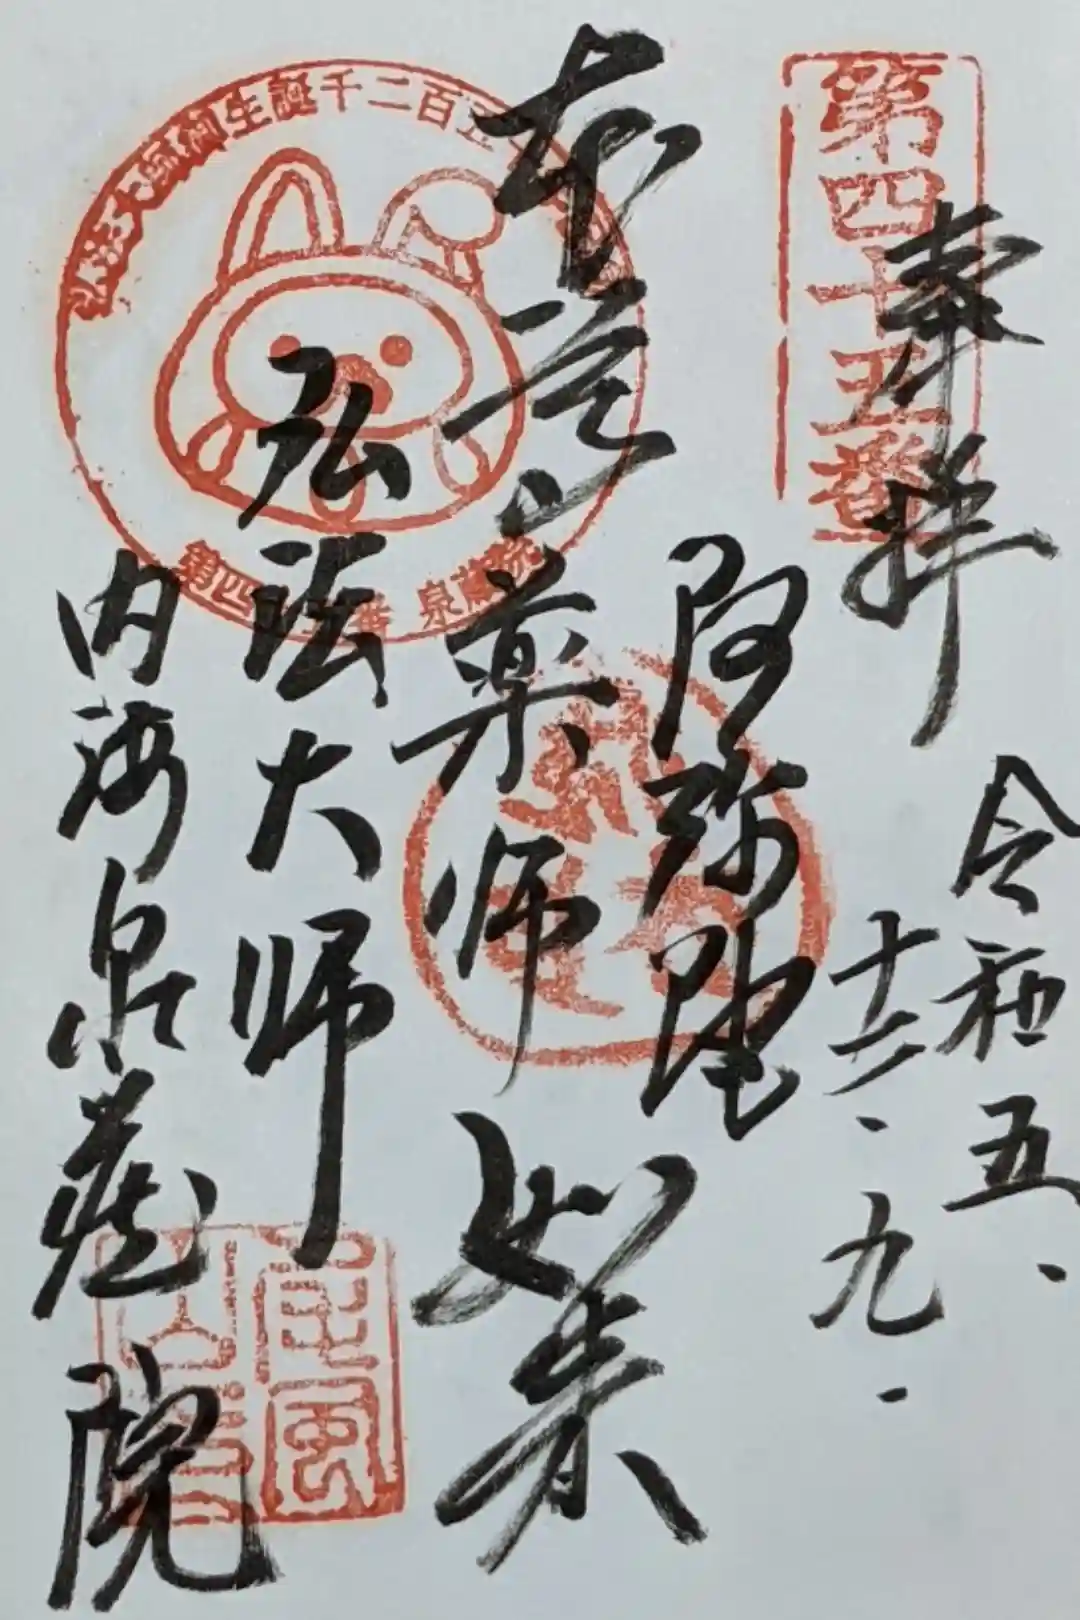 第四十五番
奉拝
令和五、
十二、九、
阿弥陀
本尊
薬師
如来
弘法大師
内海泉蔵院
弘法大師御生誕千二百五
第四十五番 泉蔵院